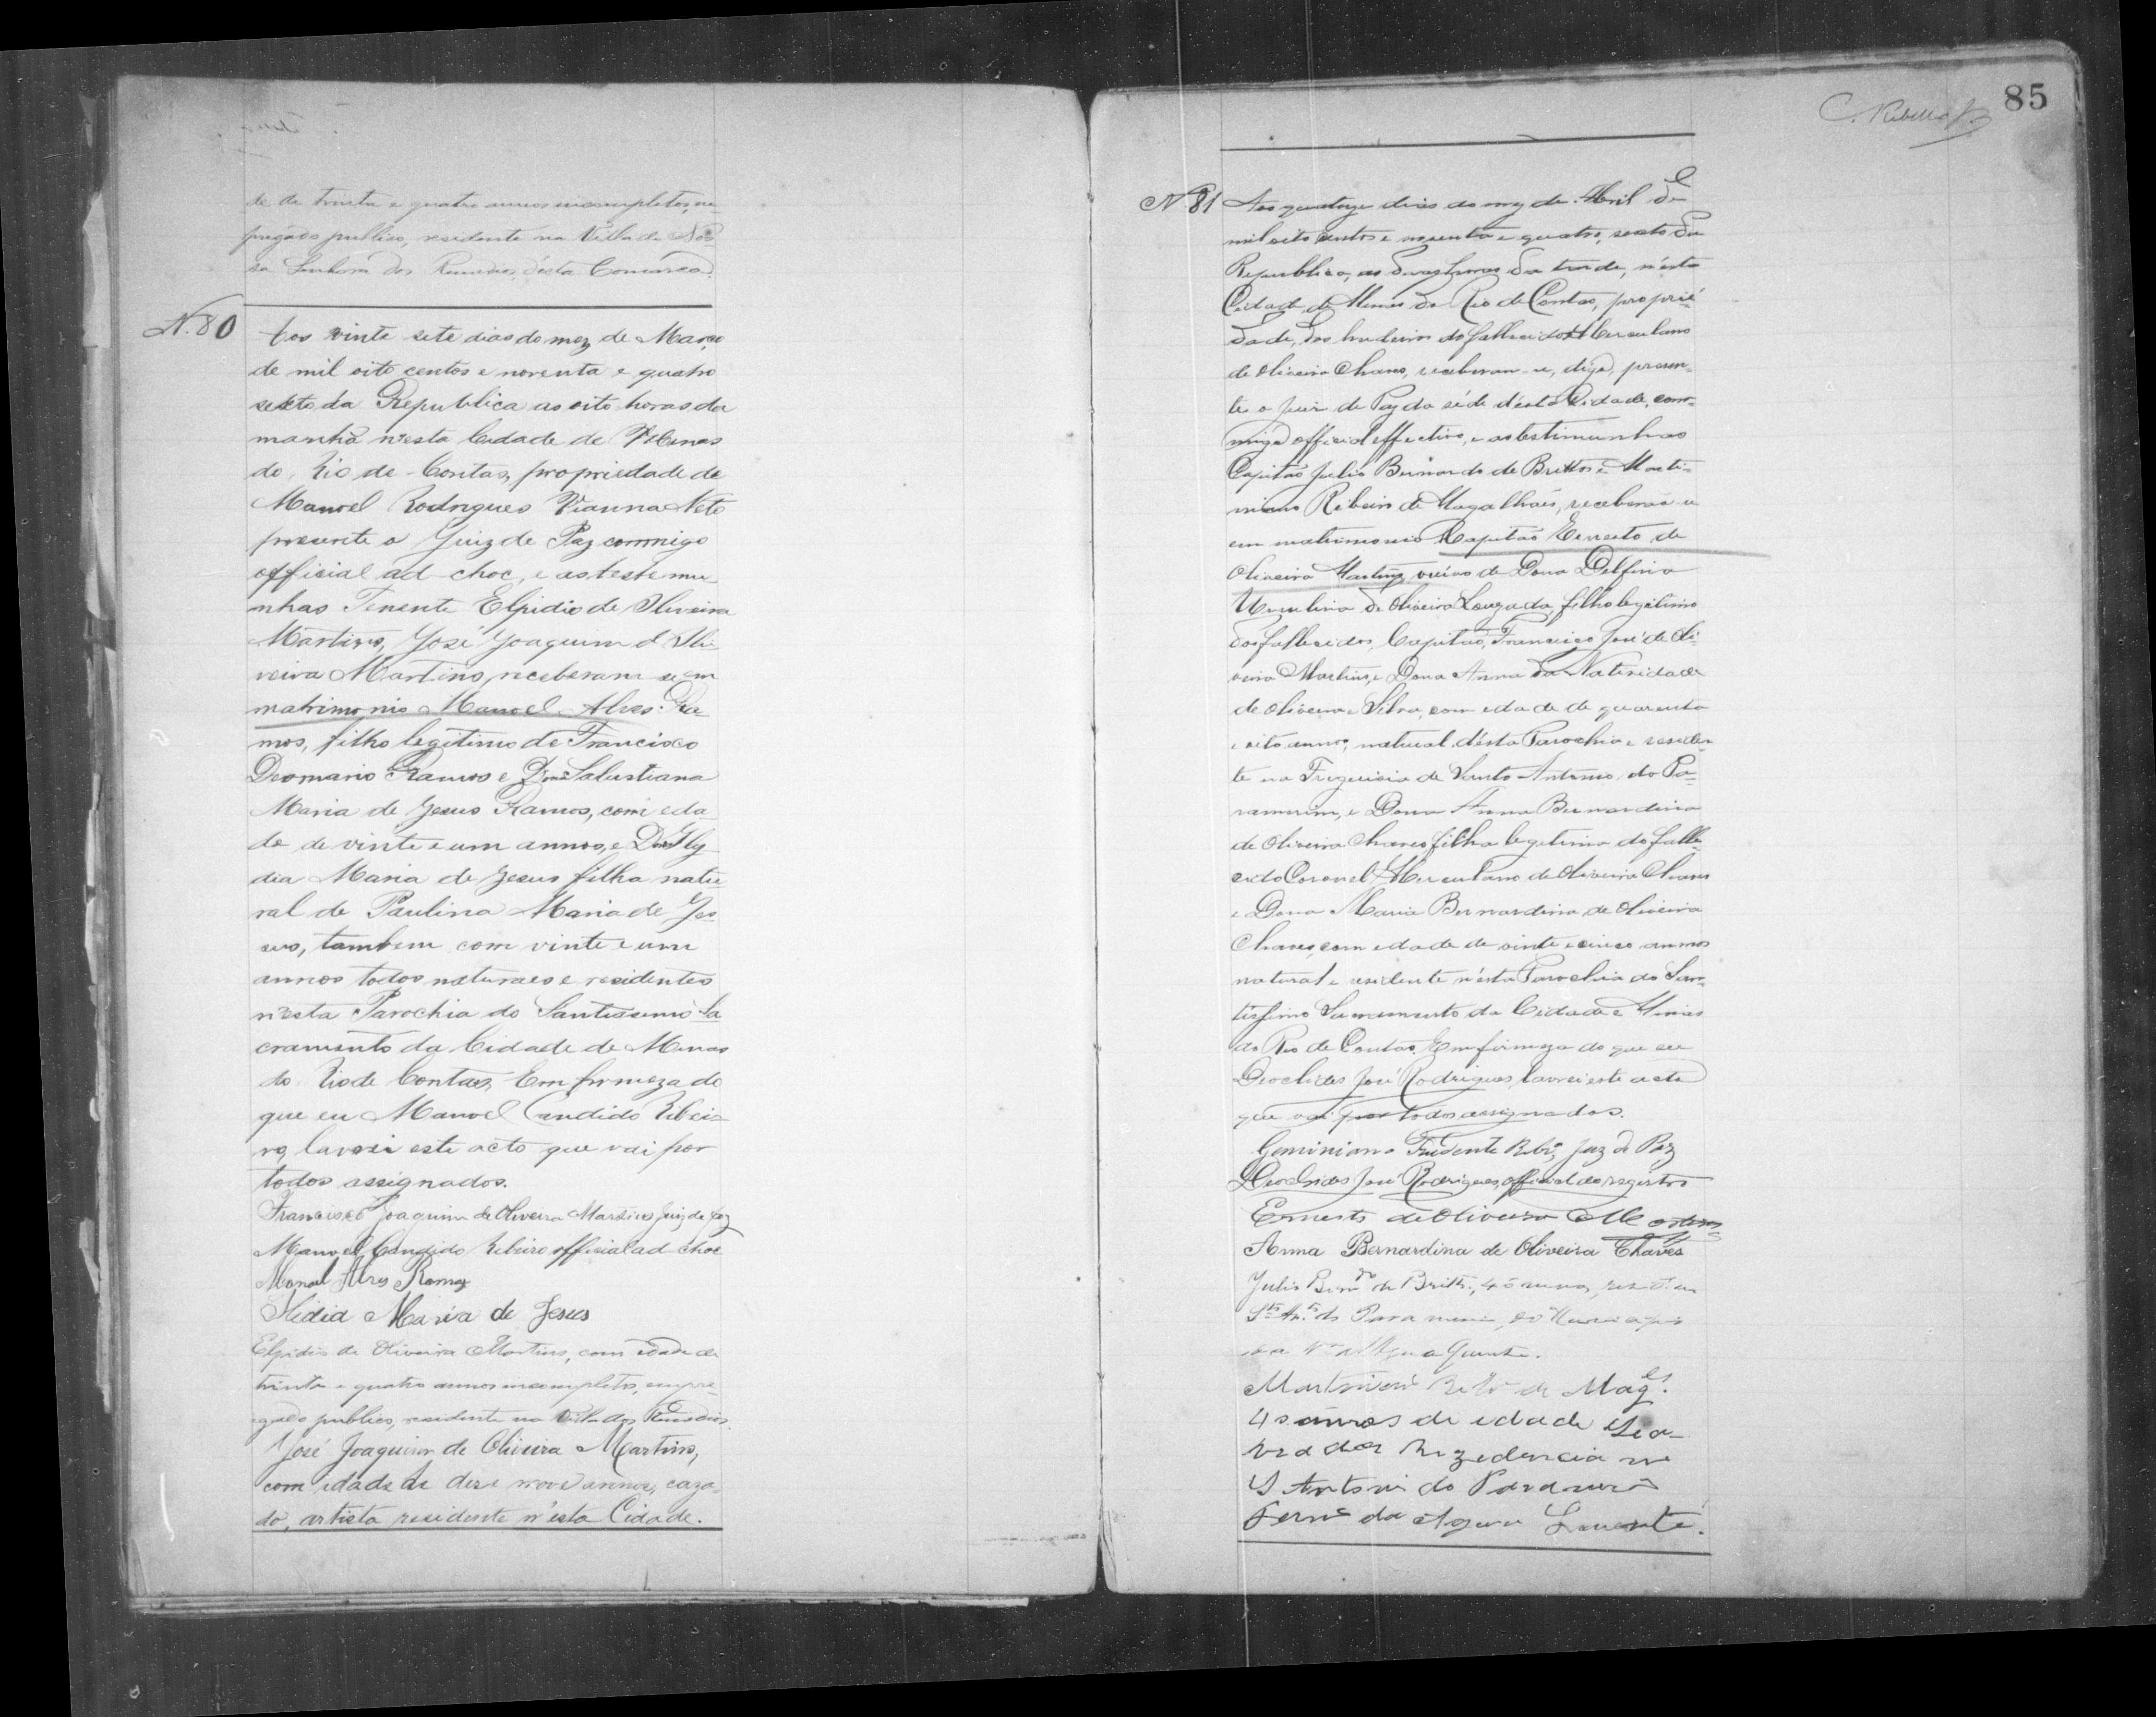 de de trinta e quatro annos incompletos, em-
pregado publico, residente na Villa de Nos-
sa Senhora dos Remedios, d'esta Comarca.
N. 80
Aos vinte sete dias do mez de Março
de mil oito centos e noventa e quatro
sexto da Republica as oito horas da
manhã n'esta Cidade de Minas
do Rio de Contas, propriedade de
Manoel Rodrigues Vianna Neto
presente o Juiz de Paz commigo
official ad choc, e as testemu
nhas Tenente Elpidio de Oliveira
Martins, José Joaquim d Oli
veira Martins, receberam se em
matrimonio Manoel Alves Ra
mos, filho legitimo de Francisco
Deomario Ramos e Dona Salustiana
Maria de Jesus Ramos, com eda
de de vinte e um annos, e Dona Ily
dia Maria de Jesus filha natu
ral de Paulina Maria de Je
sus, tambem com vinte e um
annos todos naturaes e residentes
n'esta Parochia do Santissimo Sa
cramento da Cidade de Minas
do Rio de Contas, Em firmeza do
que eu Manoel Candido Ribei
ro, lavrei este acto que vai por
todos assignados.
Francisco Joaquim de Oliveira Martins Juiz de Paz
Manoel Candido Ribeiro official ad choc
Manoel Alves Ramos
Ilidia Maria de Jesus
Elpidio de Oliveira Martins, com edade de
trinta e quatro annos incompletos, empre-
gado publico, residente na Villa dos Remedios.
José Joaquim de Oliveira Martins,
com idade de deze nove annos, caza
do, artista residente n'esta Cidade.
85
C. Ribeiro
N 81
Aos quatorze dias do mez de Abril de
mil oito centos e noventa e quatro, sexto da
Republica, as duas horas da tarde, n'esta
Cidade de Minas do Rio de Contas, proprie
dade dos herdeiros do fallecido Herculano
de Oliveira Chaves, receberam-se, digo, presen-
te o Juiz de Paz da séde d'esta Cidade, com-
migo official effectivo, e as testimunhas
Capitão Julio Bernardo de Brittos e Marti-
niano Ribeiro de Magalhães, receberão se
em matrimonio Capitão Ernesto de
Oliveira Martins, viúvo de Dona Delfina
Umbelina de Oliveira Louzada, filho legitimo
dos fallecidos, Capitão, Francisco José de Oli
veira Martins, e Dona Anna da Natividade
de Oliveira e Silva, com edade de quarenta
e oito annos, natural d'esta Parochia e residen
te na Freguesia de Santo Antonio do Pa-
ramirim, e Dona Anna Bernardina
de Oliveira Chaves, filha legitima do falle-
cido Coronel Herculano de Oliveira Chaves
e Dona Maria Bernardina de Oliveira
Chaves, com edade de vinte e cinco annos
natural e residente n'esta Parochia do San-
tissimo Sacramento da Cidade e Minas
do Rio de Contas. Em firmeza do que eu
Deoclides José Rodrigues, lavrei este acta
que vai por todos assignados.
Geminiano Prudente Ribro, Juz de Paz
Deoclides José Rodrigues, official do registro
Ernesto de Oliveira Martins
Anna Bernardina de Oliveira Chaves
Julio Berndo de Britto, annos,
Sto Anto do Paramirim, do Municipio
da Agua Quente.
Martiniano Ribro de Mages.
annos de edade La-
vrador Rezedencia no
S Antoni do Paramirim
Termo da Agua Quente.